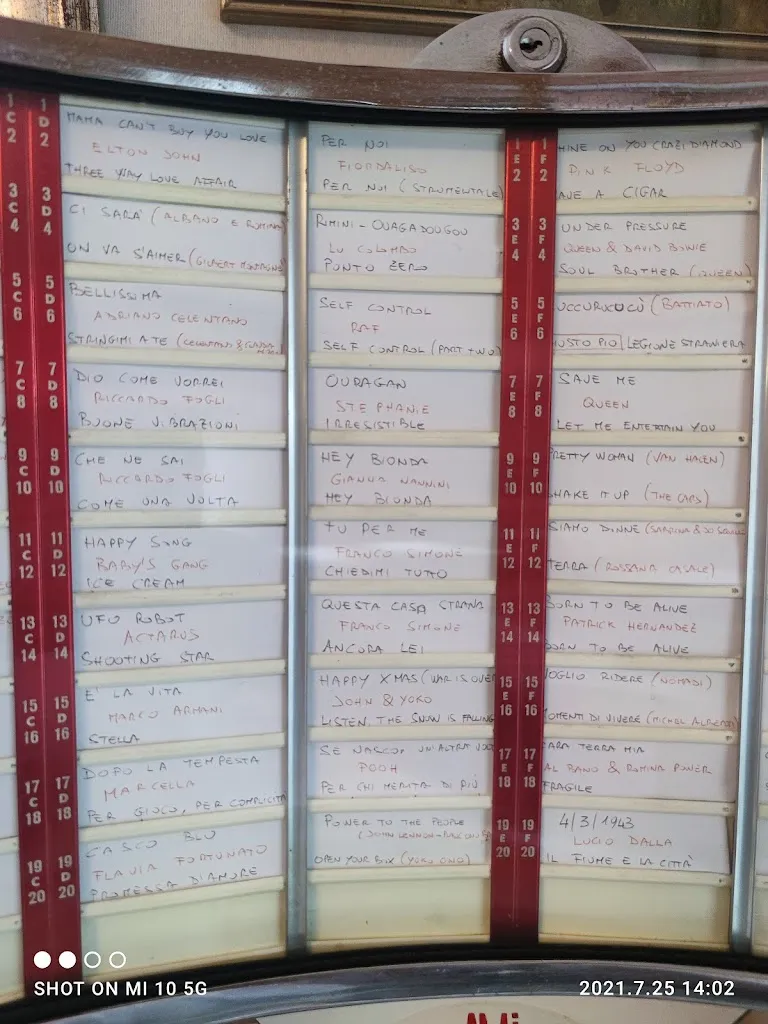 1 C 2
1 D 2
MAMA CAN'T BUY YOU LOVE
ELTON JOHN
THREE WAY LOVE AFFAIR
3 C 4
3 D 4
CI SARÀ (ALBANO E ROMINA
ON VA S'AIMER (GILBERT MONTAGNÈ)
5 C 6
5 D 6
BELLISSIMA
ADRIANO CELENTANO
STRINGIMI A TE (CELENTANO &
7 C 8
7 D 8
DIO COME VORREI
RICCARDO FOGLI
BUONE VIBRAZIONI
9 C 10
9 D 10
CHE NE SAI
RICCARDO FOGLI
COME UNA VOLTA
11 C 12
11 D 12
HAPPY SONG
BABY'S GANG
ICE CREAM
13 C 14
13 D 14
UFO ROBOT
ACTARUS
SHOOTING STAR
15 C 16
15 D 16
E' LA VITA
MARCO ARMANI
STELLA
17 C 18
17 D 18
DOPO LA TEMPESTA
MARCELLA
PER GIOCO, PER COMPLICITA
19 C 20
19 D 20
CASCO BLU
FLAVIA FORTUNATO
PROMESSA D'AMORE
PER NOI
FIORDALISO
PER NOI (STRUMENTALE)
RIMINI - OUAGADOUGOU
LU COLOMBO
PUNTO ZERO
SELF CONTROL
RAF
SELF CONTROL (PART TWO)
OURAGAN
STEPHANIE
IRRESISTIBLE
HEY BIONDA
GIANNA NANNINI
HEY BIONDA
TU PER ME
FRANCO SIMONE
CHIEDIMI TUTTO
QUESTA CASA STRANA
FRANCO SIMONE
ANCORA LEI
HAPPY XMAS (WAR IS OVER
JOHN & YOKO
LISTEN, THE SNOW IS FALLING
SE NASCO UN'ALTRA VOLTA
POOH
PER CHI MERITA DI PIÙ
POWER TO THE PEOPLE
(JOHN LENNON-
OPEN YOUR BOX (YOKO ONO)
1 E 2
1 F 2
HINE ON YOU CRAZI DIAMOND
PINK FLOYD
AVE A CIGAR
3 E 4
3 F 4
UNDER PRESSURE
QUEEN & DAVID BOWIE
SOUL BROTHER (QUEEN)
5 E 6
5 F 6
UCCURUCUCÙ (BATTIATO)
IUSTO PIO LEGIONE STRANIERA
7 E 8
7 F 8
SAVE ME
QUEEN
LET ME ENTERTAIN YOU
9 E 10
9 F 10
RETTY WOMAN (VAN HALEN)
HAKE IT UP (THE CARS)
11 E 12
11 F 12
SIAMO DONNE (SABRINA & JO SQUILLO
TERRA (ROSSANA CASALE)
13 E 14
13 F 14
BORN TO BE ALIVE
PATRICK HERNANDEZ
BORN TO BE ALIVE
15 E 16
15 F 16
VOGLIO RIDERE (NOMADI)
OMENTI DI VIVERE (MICHEL ALBERGO)
17 E 18
17 F 18
ARA TERRA MIA
AL BANO & ROMINA POWER
FRAGILE
19 E 20
19 F 20
4/3/1943
LUCIO DALLA
IL FIUME E LA CITTÀ
AMi
SHOT ON MI 10 5G
2021.7.25 14:02